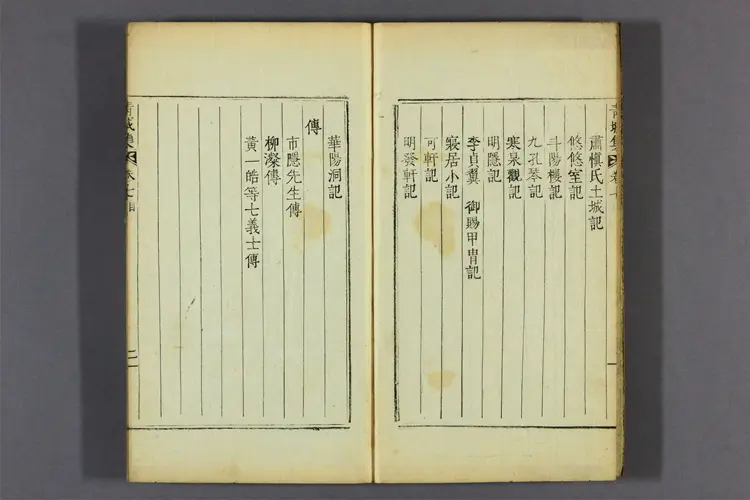 肅愼氏土城記
悠悠室記
斗陽樓記
九孔琴記
寒杲觀記
明隱記
李貞翼 御賜甲冑記
寢居小記
可軒記
明發軒記
華陽洞記
傳
市隱先生傳
柳濴傳
黃一皓等七義士傳